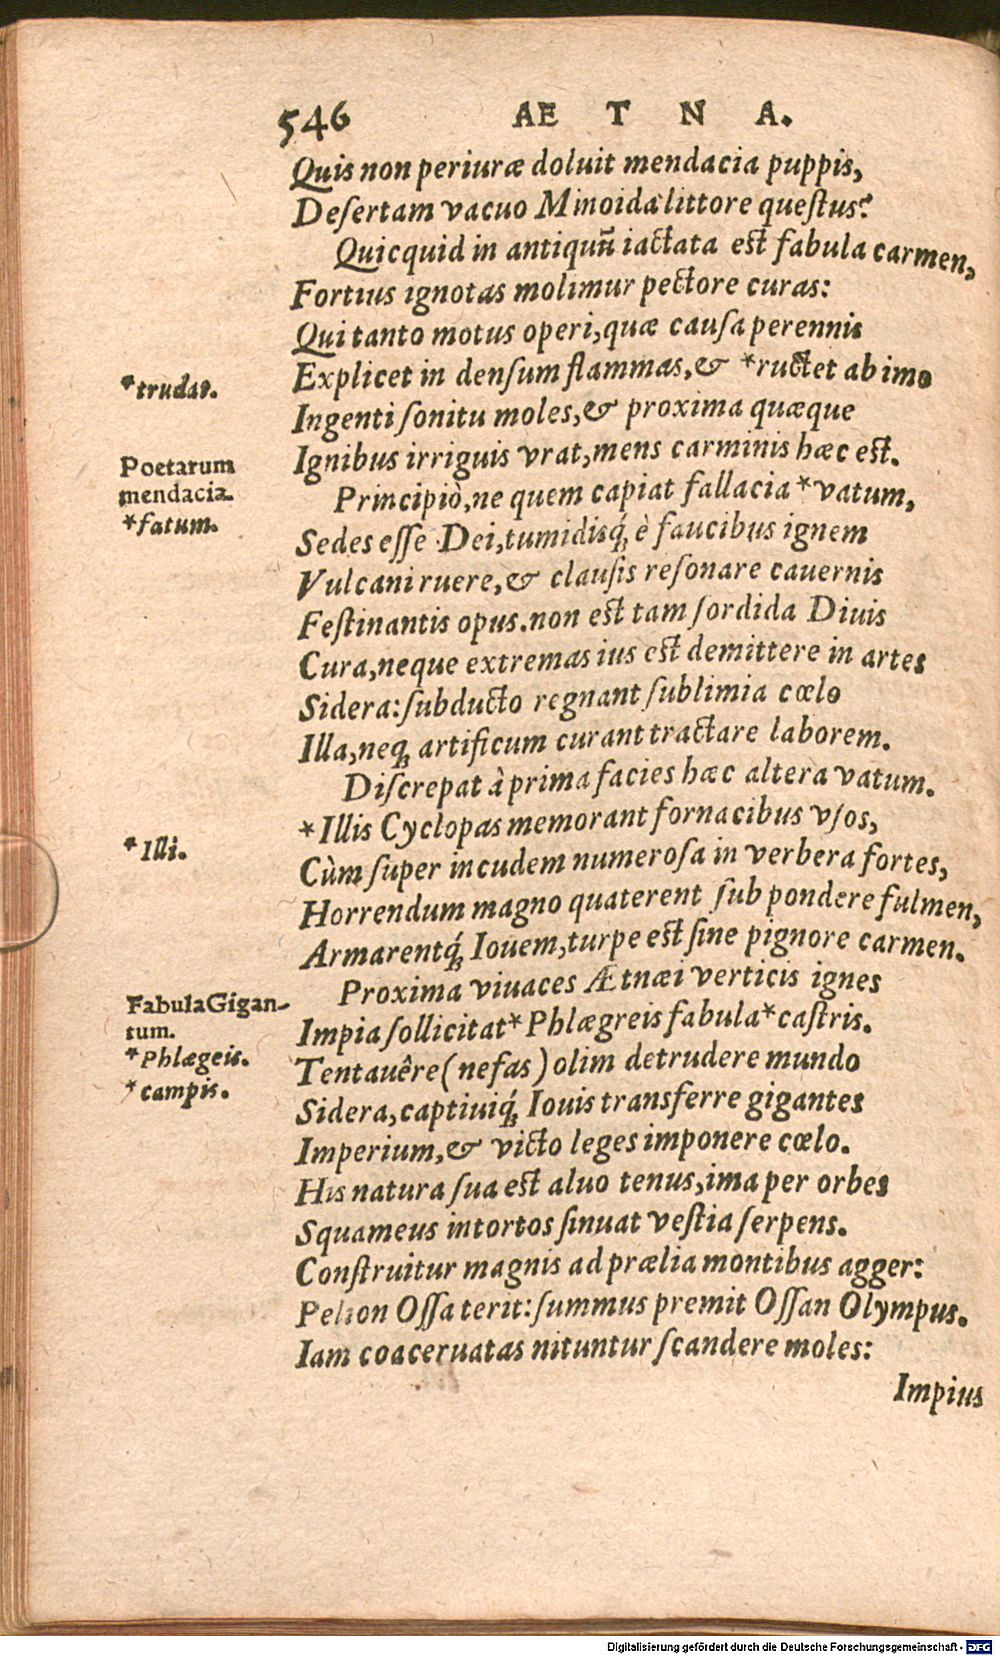 546 AE T N A.
Quis non periuræ doluit mendacia puppis,
Deſertam vacuo Minoida littore queſtus?
Quicquid in antiquũ iactata eſt fabula carmen,
Fortius ignotas molimur pectore curas:
Qui tanto motus operi, quæ cauſa perennis
*trudat.
Explicet in denſum flammas, & *ructet ab imo
Ingenti ſonitu moles, & proxima quæque
Ignibus irriguis vrat, mens carminis hæc eſt.
Poetarum
mendacia.
*fatum.
Principiò, ne quem capiat fallacia *vatum,
Sedes eſſe Dei, tumidisq́; è faucibus ignem
Vulcani ruere, & clauſis reſonare cauernis
Feſtinantis opus. non eſt tam ſordida Diuis
Cura, neque extremas ius eſt demittere in artes
Sidera: ſubducto regnant ſublimia cœlo
Illa, neq; artificum curant tractare laborem.
Diſcrepat à prima facies hæc altera vatum.
*Illi.
*Illis Cyclopas memorant fornacibus vſos,
Cùm ſuper incudem numeroſa in verbera fortes,
Horrendum magno quaterent ſub pondere fulmen,
Armarentq́; Iouem, turpe eſt ſine pignore carmen.
Fabula Gigan-
tum.
*Phlægeis.
*campis.
Proxima viuaces Ætnæi verticis ignes
Impia ſollicitat *Phlægreis fabula *caſtris.
Tentauêre (nefas) olim detrudere mundo
Sidera, captiuiq́; Iouis transferre gigantes
Imperium, & victo leges imponere cœlo.
His natura ſua eſt aluo tenus, ima per orbes
Squameus intortos ſinuat veſtia ſerpens.
Conſtruitur magnis ad prælia montibus agger:
Pelion Oſſa terit: ſummus premit Oſſan Olympus.
Iam coaceruatas nituntur ſcandere moles:
Impius
Digitalisierung gefördert durch die Deutsche Forschungsgemeinschaft - DFG